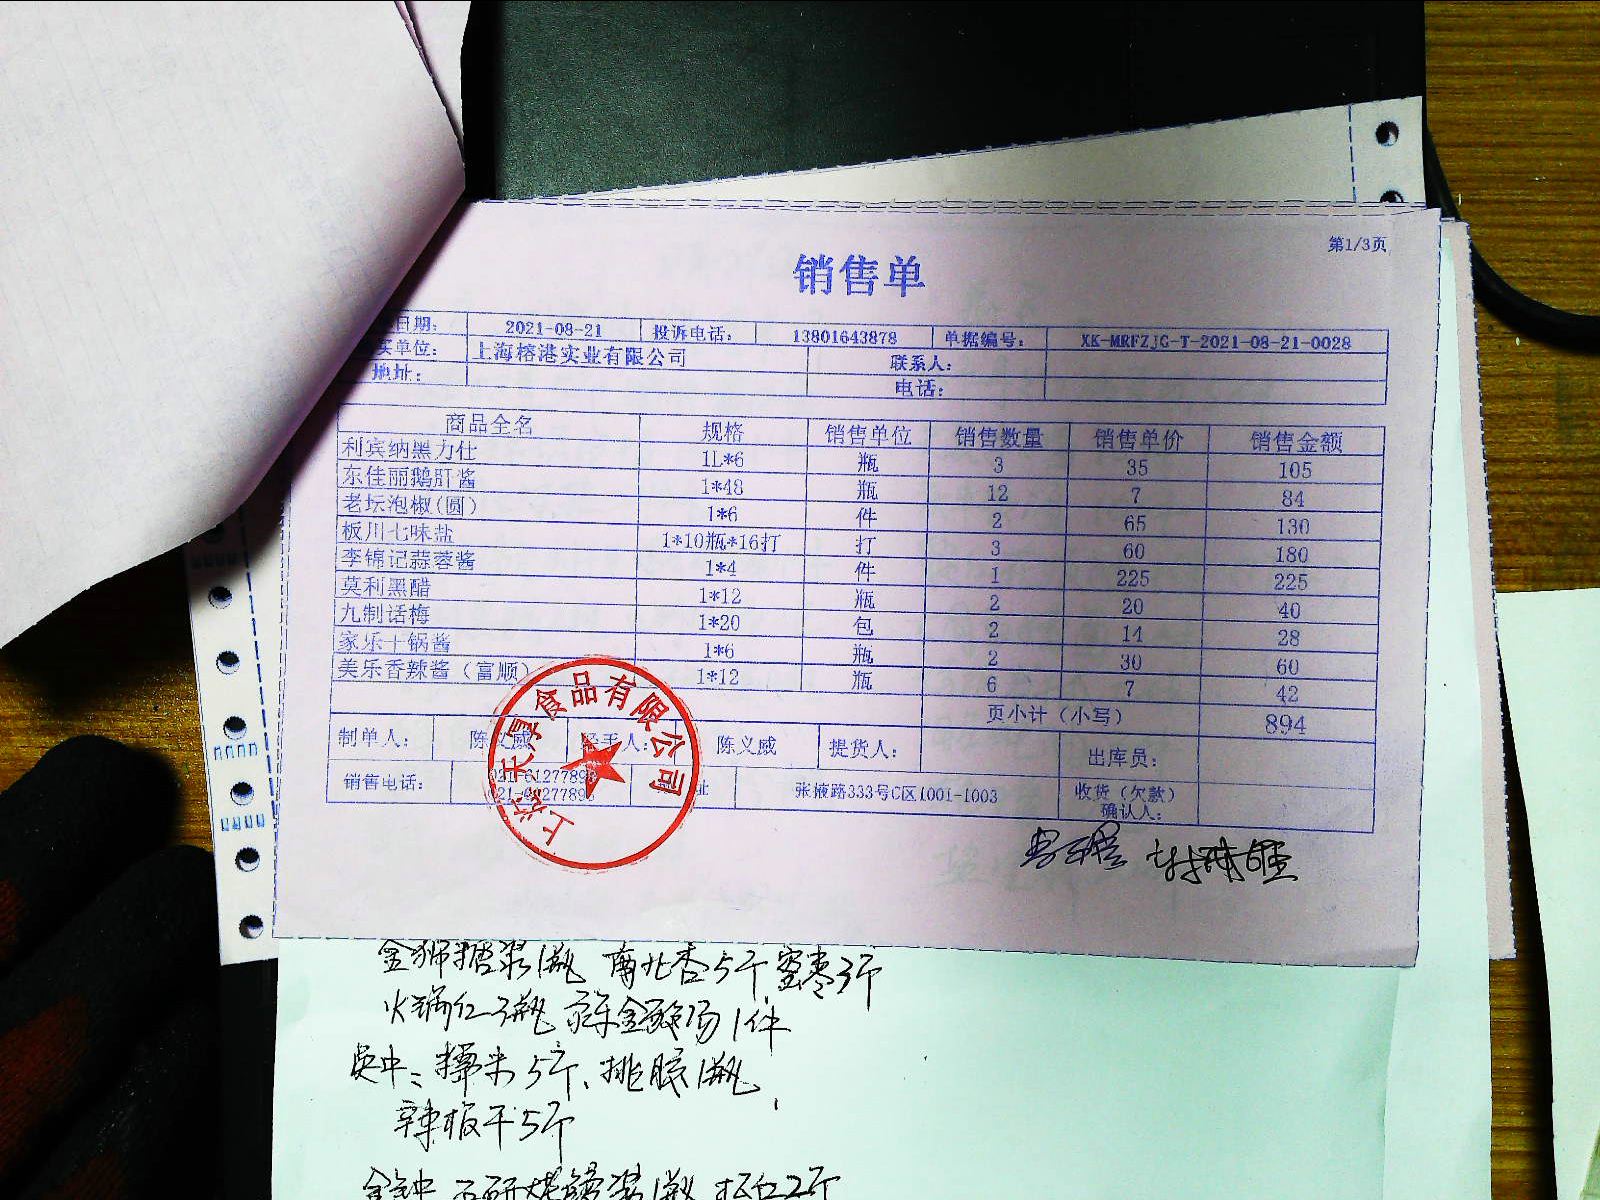 第1/3页
销售单
日期： 2021-08-21 投诉电话： 13801643878 单据编号： XK-MRFZJG-T-2021-08-21-0028
买单位： 上海榕港实业有限公司 联系人：
地址： 电话：
商品全名 规格 销售单位 销售数量 销售单价 销售金额
利宾纳黑力仕 1L*6 瓶 3 35 105
东佳丽鹅肝酱 1*48 瓶 12 7 84
老坛泡椒(圆) 1*6 件 2 65 130
板川七味盐 1*10瓶*16打 打 3 60 180
李锦记蒜蓉酱 1*4 件 1 225 225
莫利黑醋 1*12 瓶 2 20 40
九制话梅 1*20 包 2 14 28
家乐干锅酱 1*6 瓶 2 30 60
美乐香辣酱（富顺） 1*12 瓶 6 7 42
页小计（小写） 894
制单人： 陈义威 经手人： 陈义威 提货人： 出库员：
销售电话： 021-61277898 张掖路333号C区1001-1003 收货（欠款）
确认人：
食品有限公司
金狮糖浆1瓶 南北杏5个 蜜枣3个
火锅红3瓶 1件
5个、 1瓶
辣椒干5个